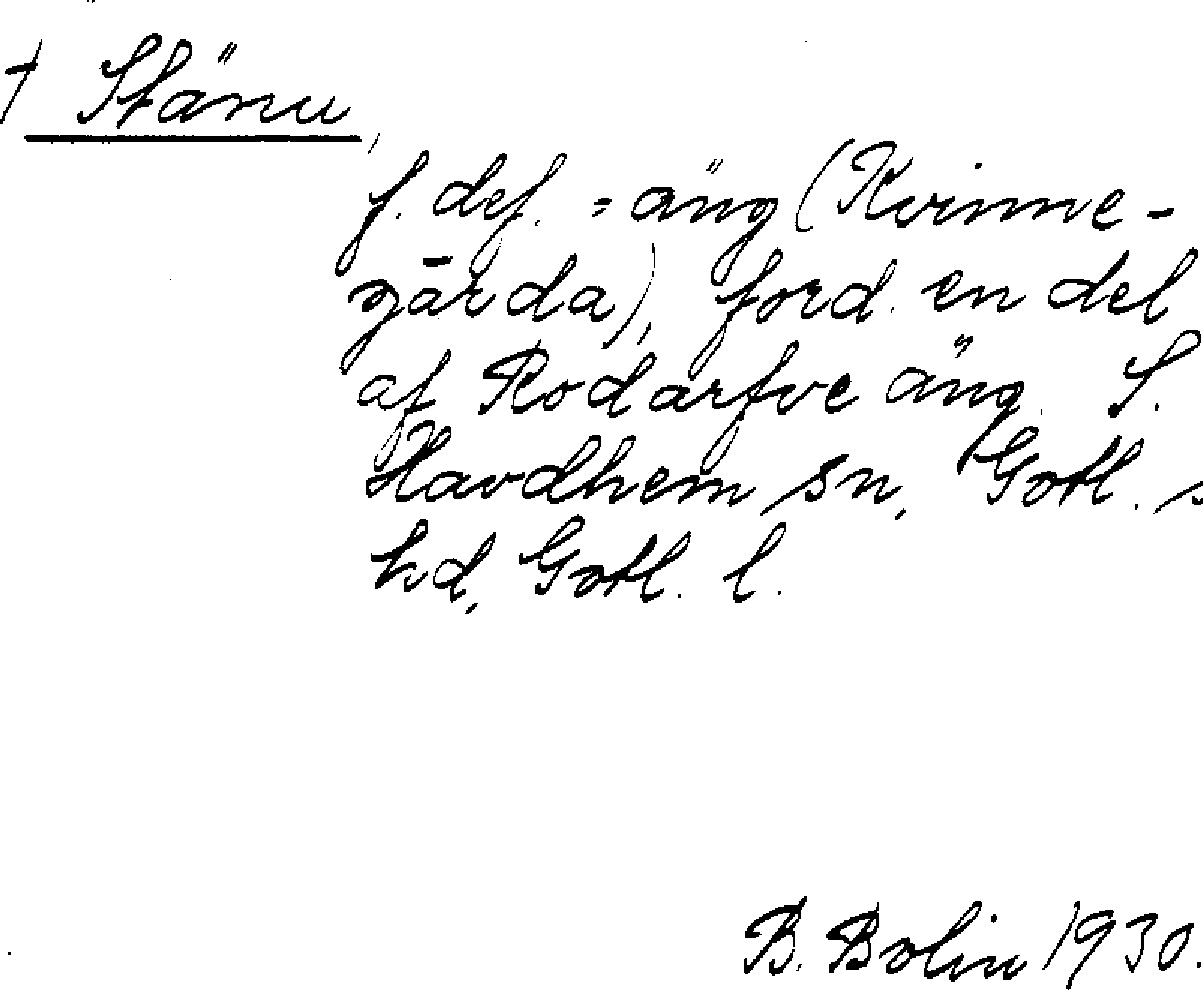 † Stänu,
f. def. = äng (Kvinne-
gärda), ford. en del
af Rodarfve äng. S.
Havdhem sn, Gotl. s
hd, Gotl. l.
B. Bolin 1930.